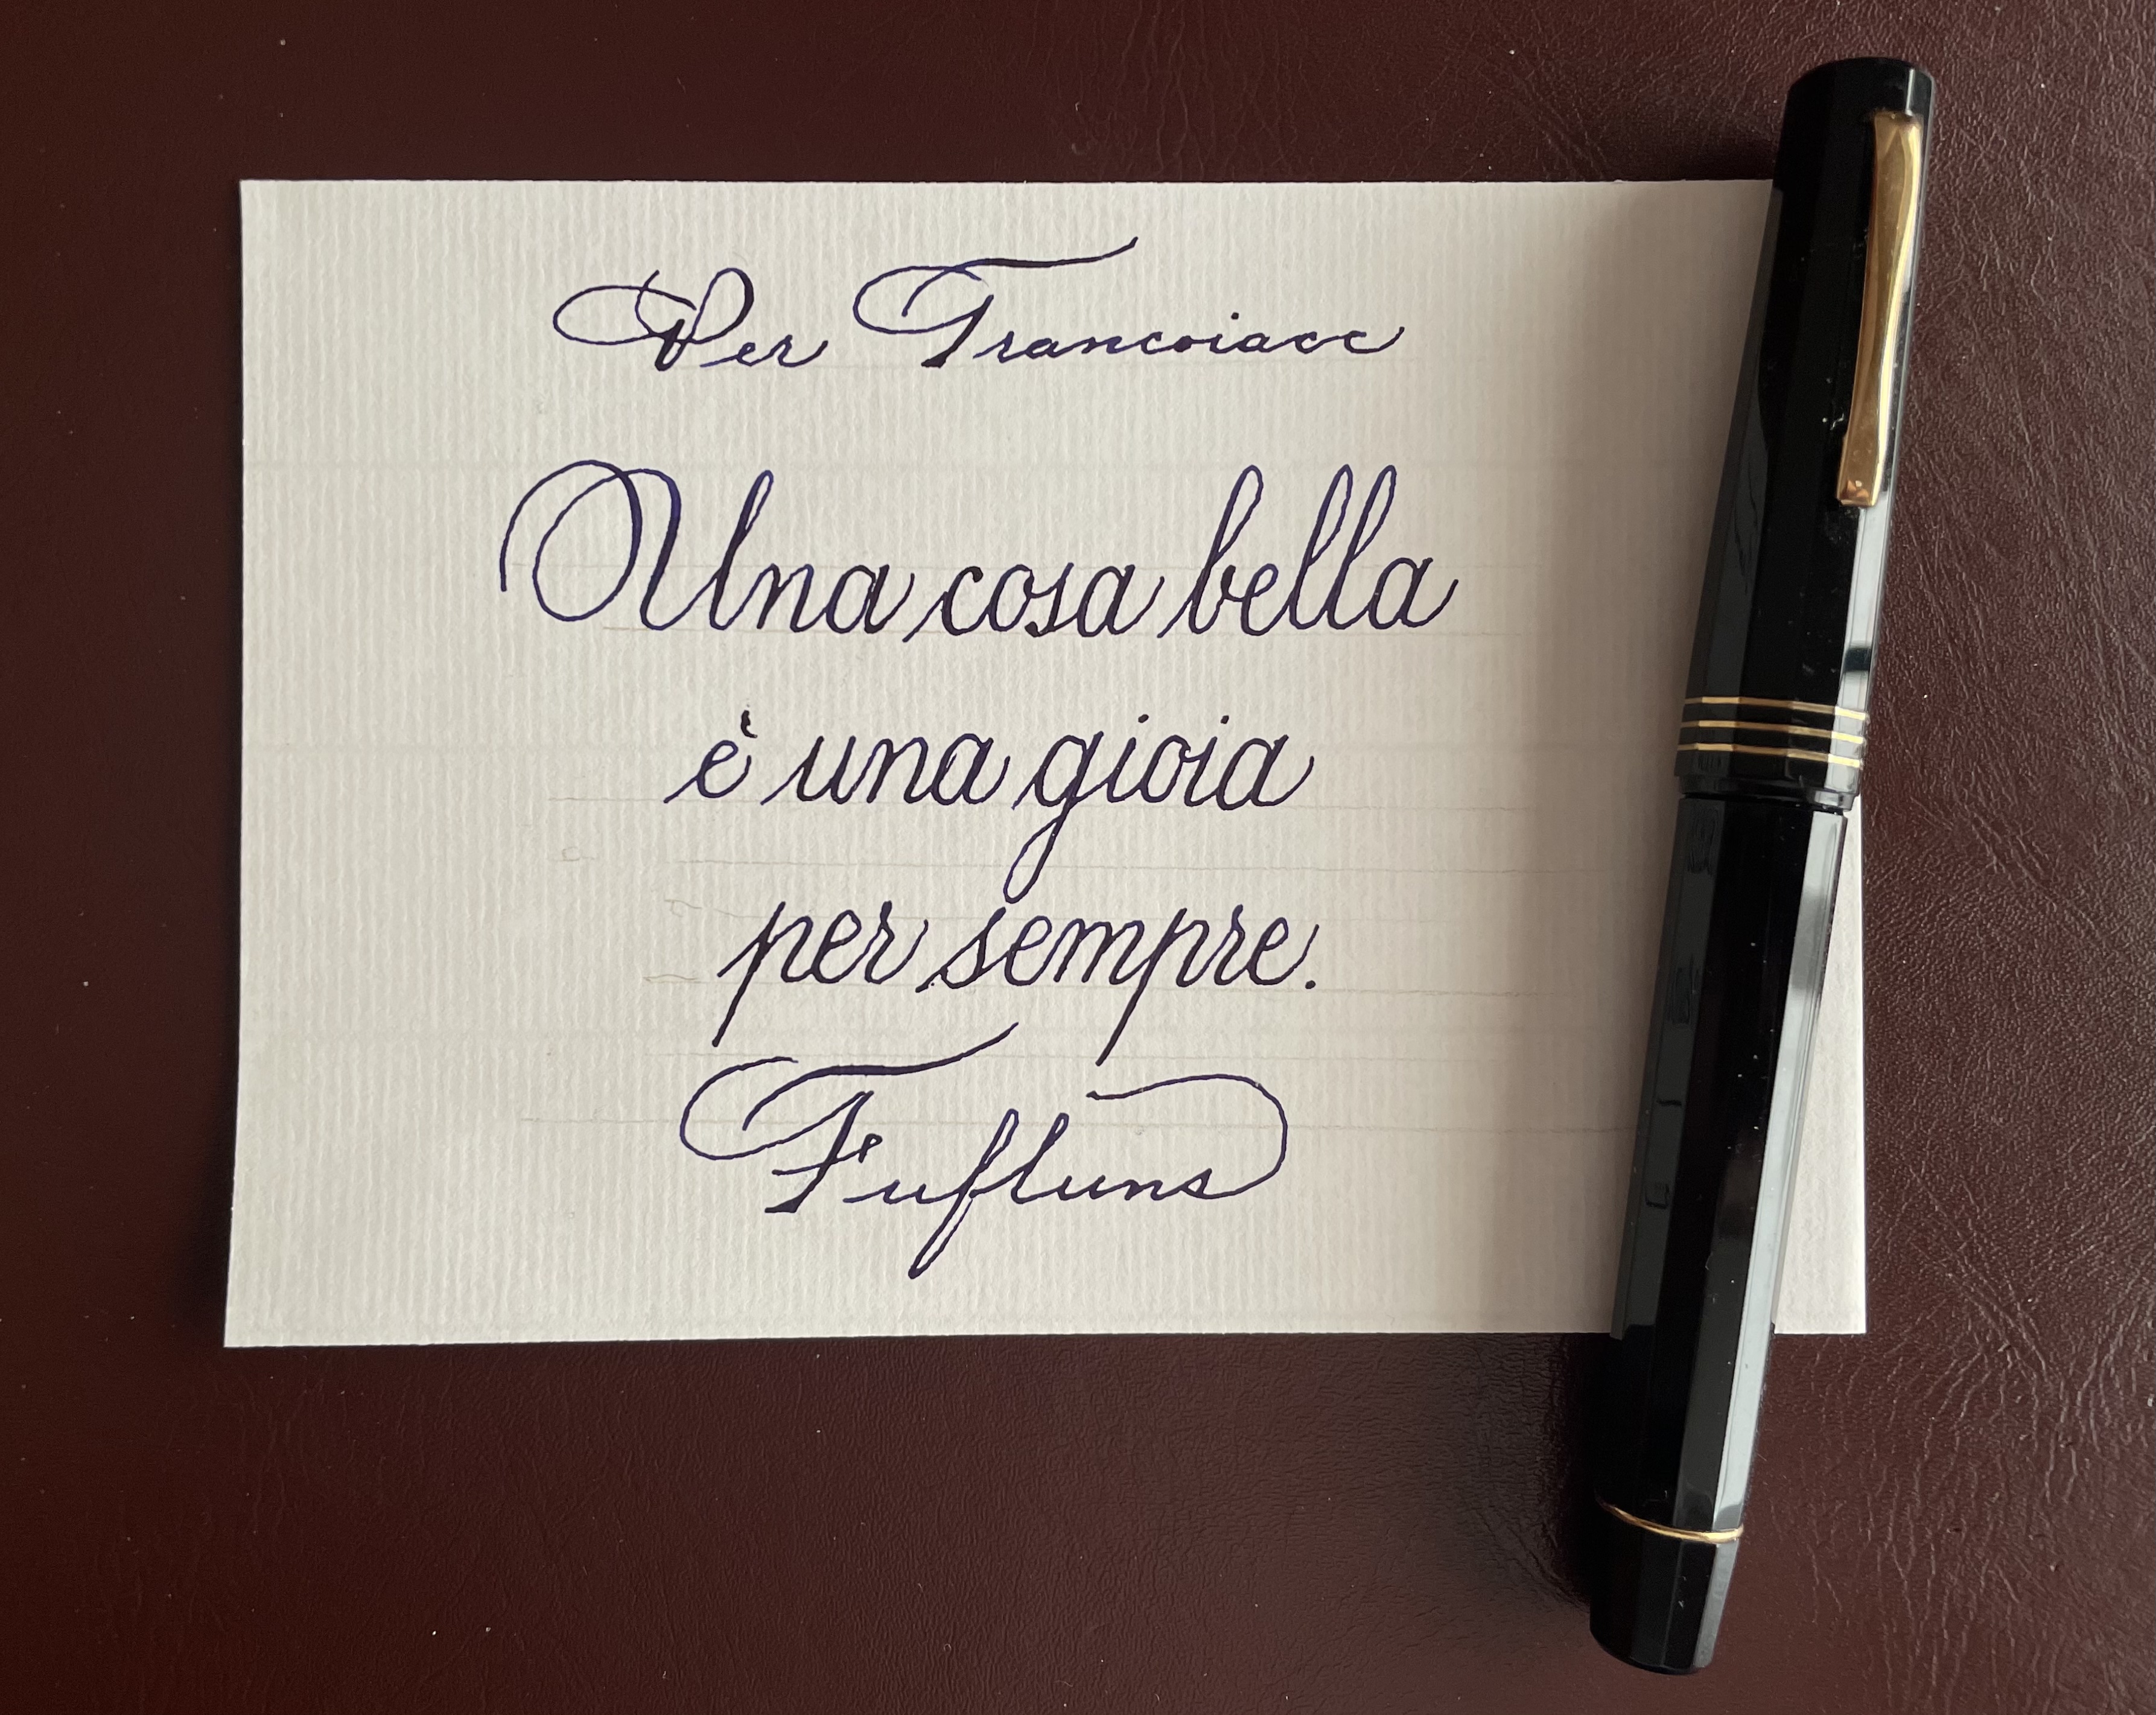 Per Trancoiacc
Una cosa bella
è una gioia
per sempre.
Fufluns